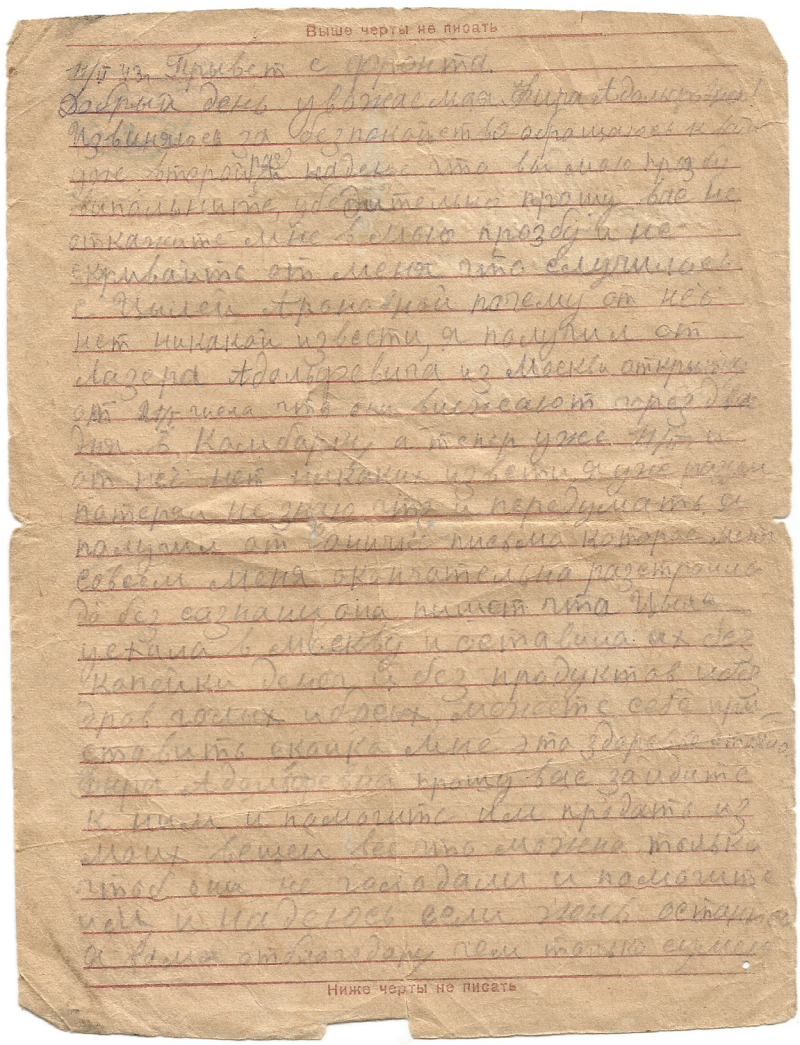 Выше черты не писать
11/II 43 г. Привет с фронта.
Добрый день уважаемая Фира Адольфовна!
Извиняюсь за безпакойство обращаюсь к вам
уже второй раз надеюс что вы маю прозбу
выпольните, убедительно прошу вас не
откажите мне в маю прозбу и не
скривайте от меня что случилось
с Цилей Ароновной почему от неё
нет никакой извести, я получил от
Лазера Адольфовича из Москви открытку
от числа что они виежают через два
дня в Камбарку а тепер уже 11/II и
от неё нет никаких извести я уже
потерял не знаю что и передумать, я
получил от письмо каторое
совсем меня окончательно разстроило
до без сазнания она пишет что Циля
уехала в Москву и оставила их без
капейки денег и без продуктов и без
дров голых и босых, можете себе при-
ставить сколка мне это здоровье стоило
Фира Адольфовна прошу вас зайдите
к ним и памогите им продать из
моих вещей всё что можно только
чтоб они не голодали и памогите
им и надеюсь если жыв останусь
я вами отблагодарю чем только сумею
Ниже черты не писать